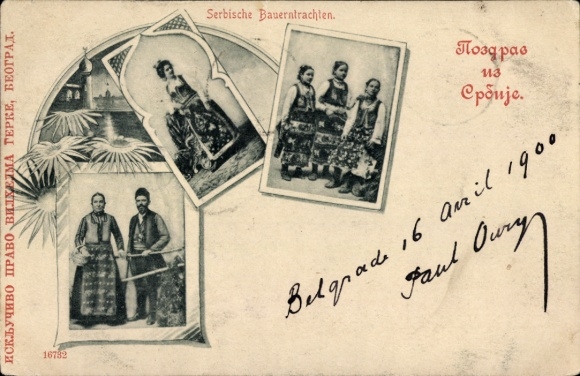 Serbische Bauerntrachten.
Поздрав
из
Србије.
ИСКЉУЧИВО ПРАВО ВИЛХЕЛМА ГЕРКЕ, БЕОГРАД.
Belgrade 16 Avril 1900
Paul
16732